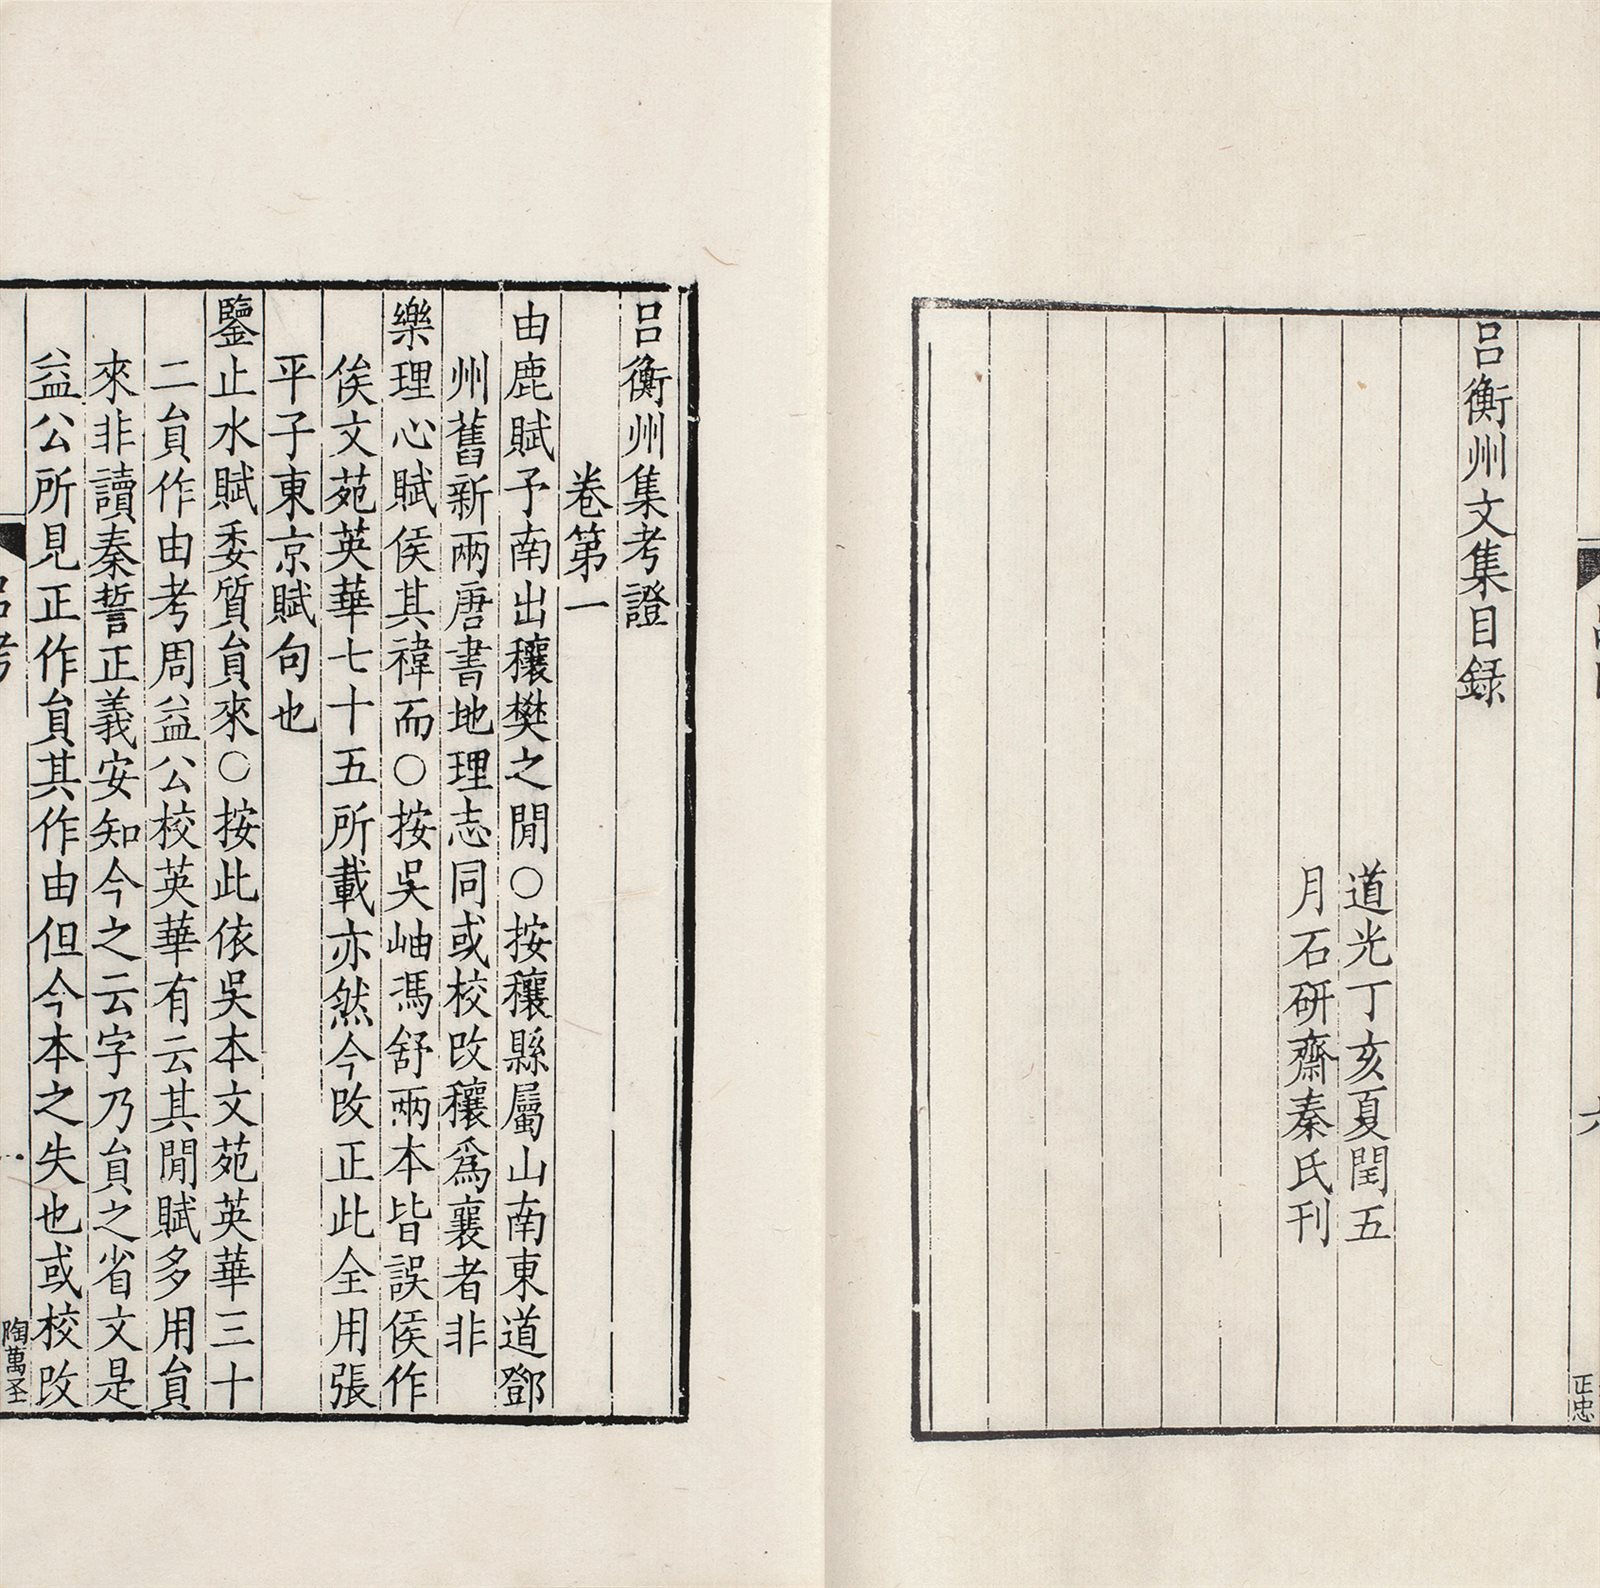 呂衡州文集目録
道光丁亥夏閏五
月石研齋秦氏刊
六
正忠
呂衡州集考證
卷第一
由鹿賦予南出穰樊之閒○按穰縣屬山南東道鄧
州舊新兩唐書地理志同或校改穰爲襄者非
樂理心賦侯其禕而○按吳岫馮舒兩本皆誤侯作
俟文苑英華七十五所載亦然今改正此全用張
平子東京賦句也
鑒止水賦委質貟來○按此依吳本文苑英華三十
二貟作由考周益公校英華有云其閒賦多用貟
來非讀秦誓正義安知今之云字乃貟之省文是
益公所見正作貟其作由但今本之失也或校改
呂考
陶萬圣